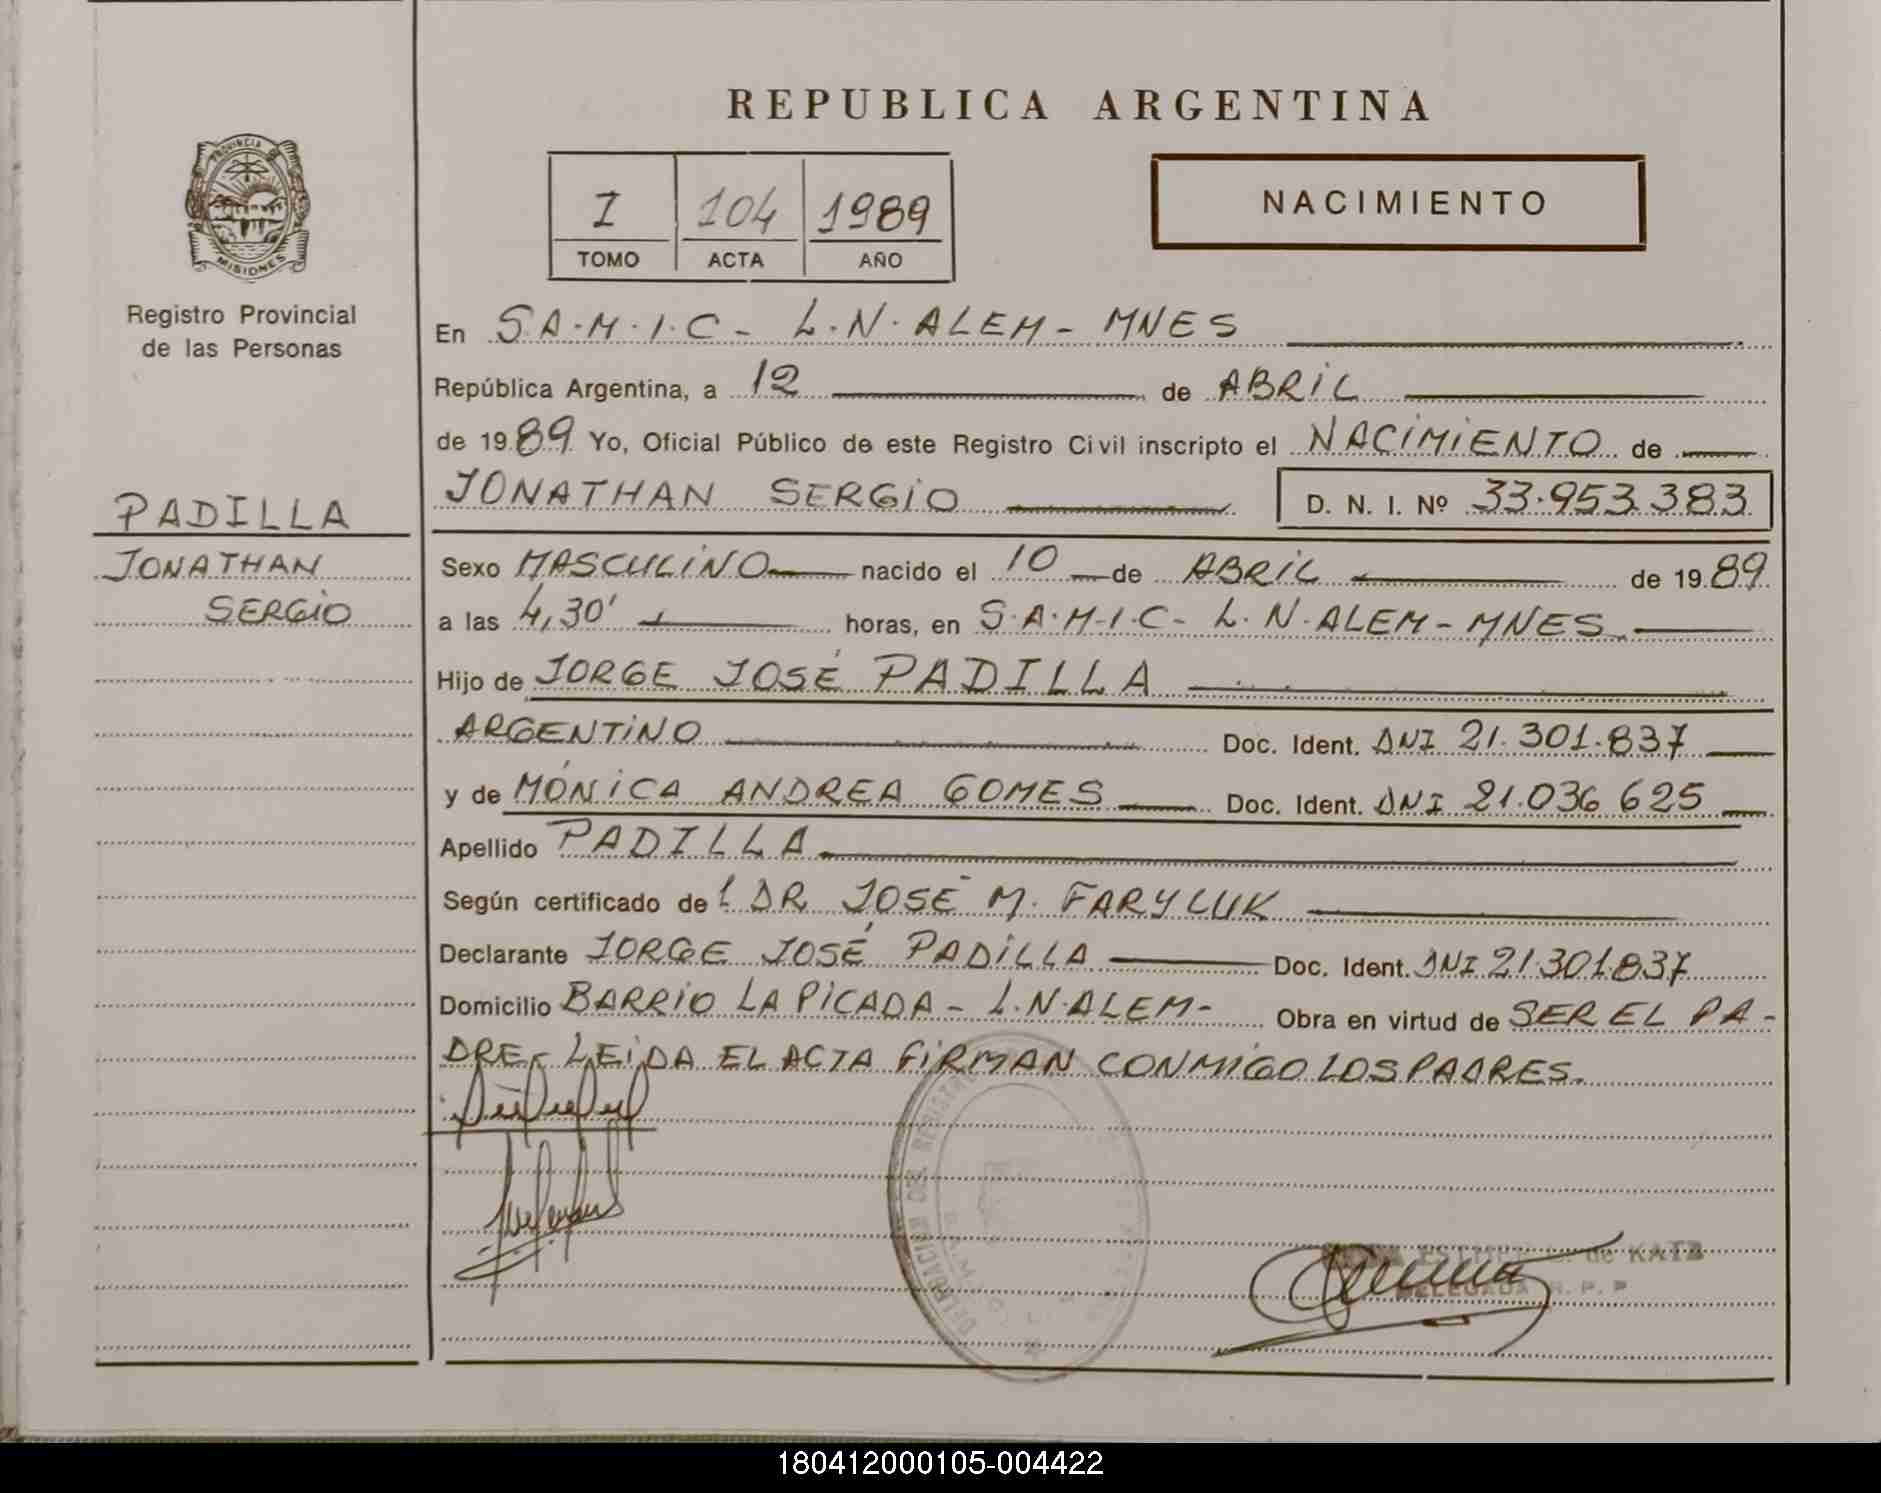 REPUBLICA ARGENTINA
PROVINCIA DE
MISIONES
Registro Provincial
de las Personas
I 104 1989
TOMO ACTA AÑO
NACIMIENTO
En S.A.M.I.C - L.N.ALEM - MNES
República Argentina, a 12 de ABRIL
de 1989 Yo, Oficial Público de este Registro Civil inscripto el NACIMIENTO de
JONATHAN SERGIO D. N. I. Nº 33.953.383
PADILLA
JONATHAN
SERGIO
Sexo MASCULINO nacido el 10 de ABRIL de 1989
a las 4,30' horas, en S.A.M.I.C - L.N.ALEM - MNES
Hijo de JORGE JOSÉ PADILLA
ARGENTINO Doc. Ident. DNI 21.301.837
y de MÓNICA ANDREA GOMES Doc. Ident. DNI 21.036.625
Apellido PADILLA
Según certificado de l DR JOSÉ M. FARYLUK
Declarante JORGE JOSÉ PADILLA Doc. Ident. DNI 21.301.837
Domicilio BARRIO LA PICADA - L.N.ALEM - Obra en virtud de SER EL PA-
DRE. LEIDA EL ACTA FIRMAN CONMIGO LOS PADRES.
DELEGACION DEL REGISTRO
de KATZ
DELEGADA R. P. P
180412000105-004422